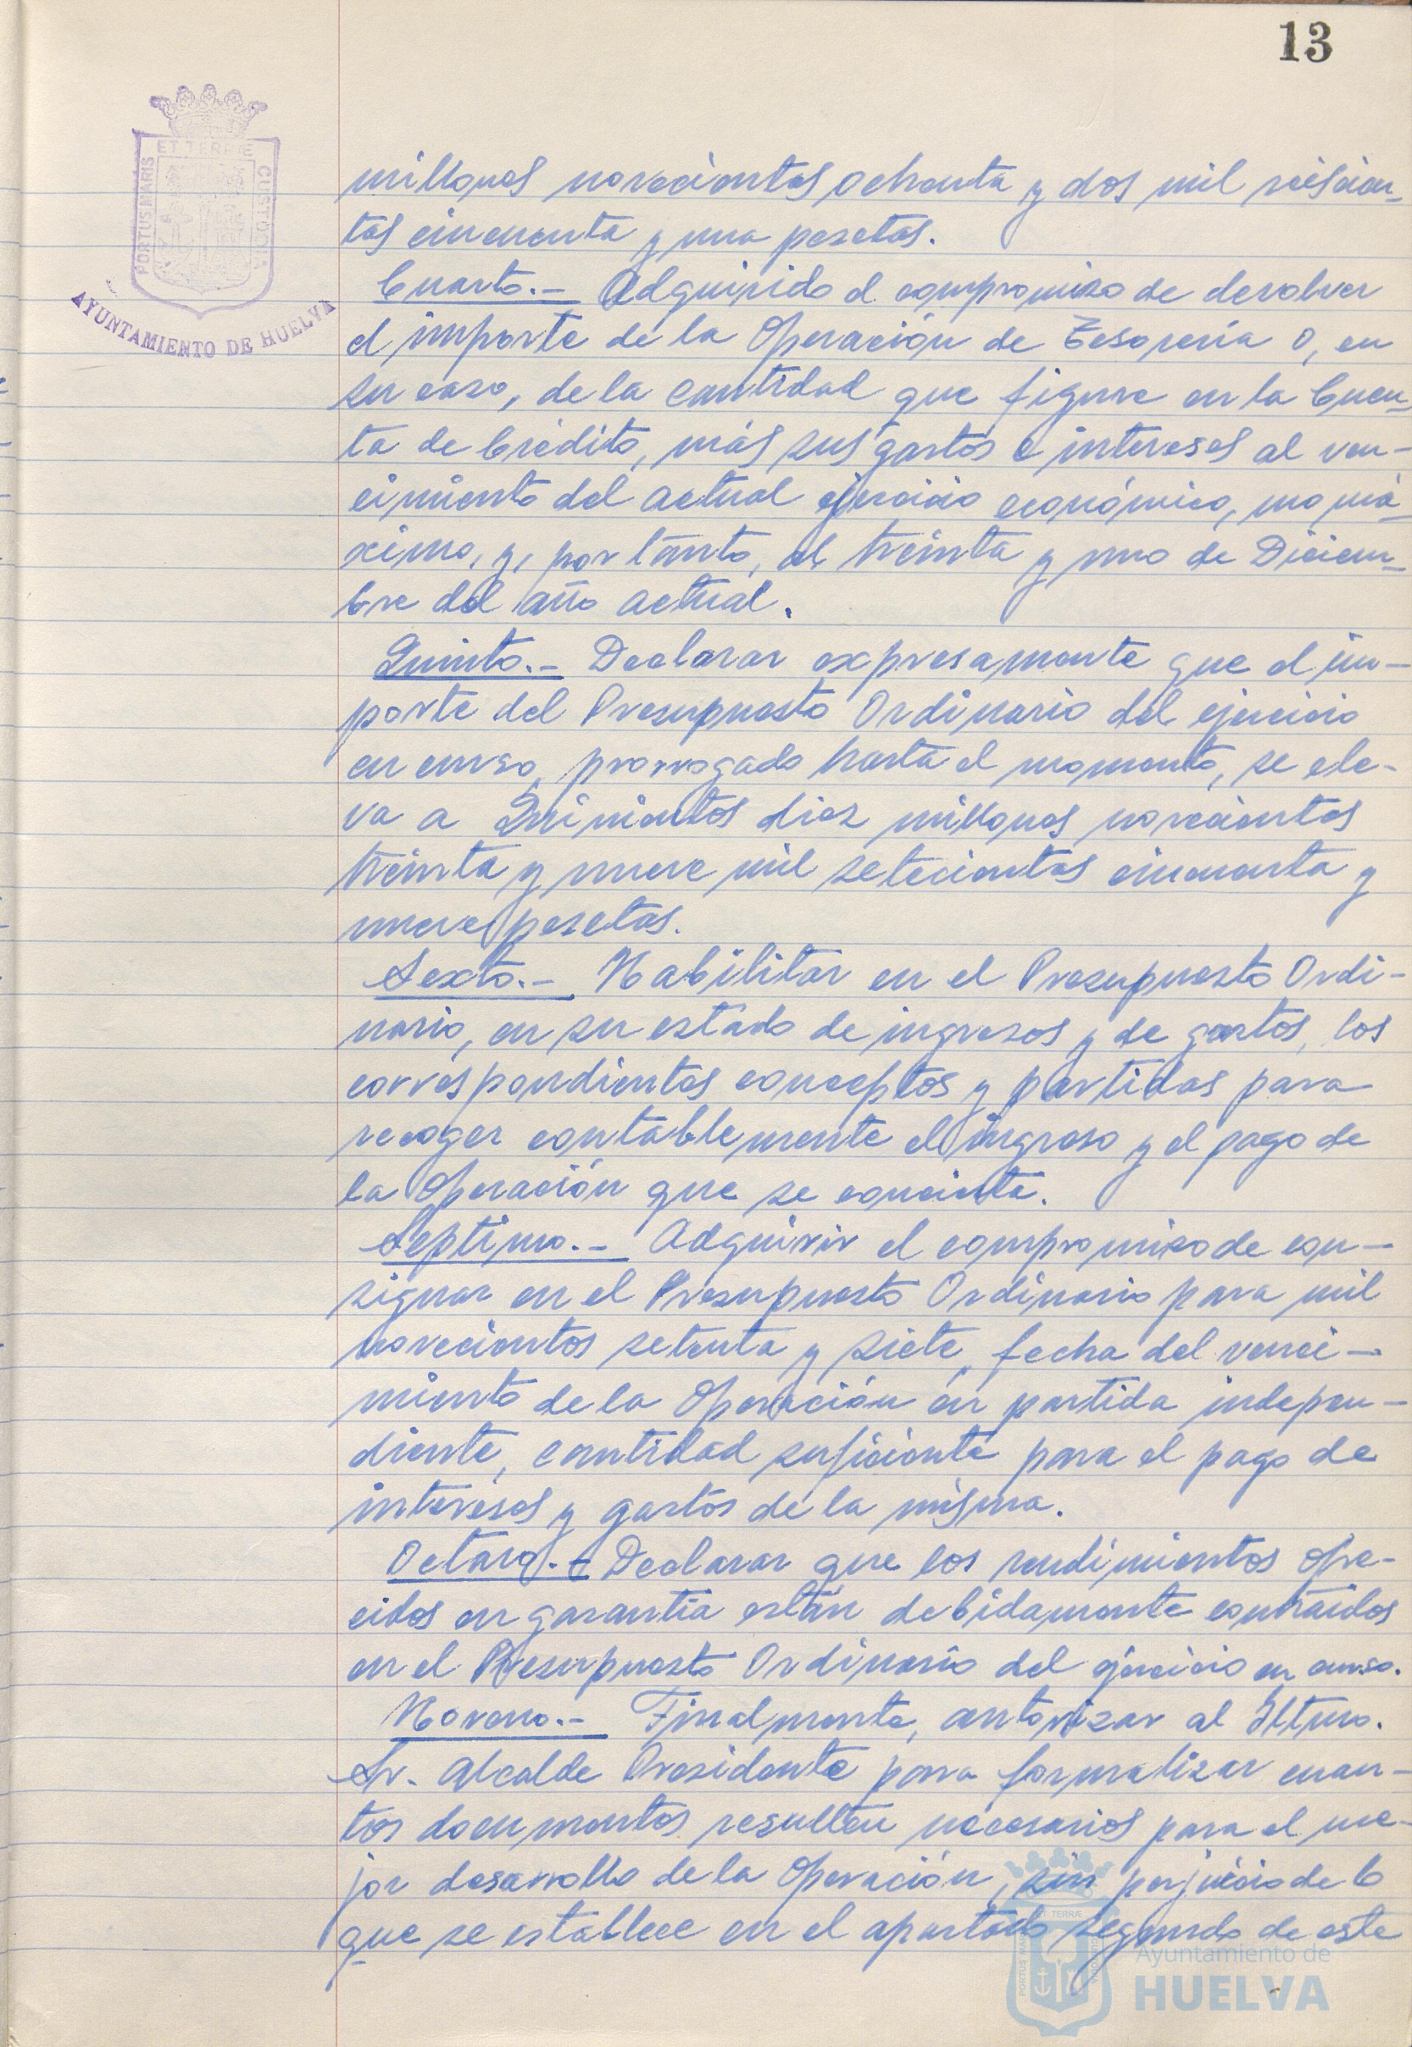 13
ET TERRÆ
PORTUS MARIS
CUSTODIA
AYUNTAMIENTO DE HUELVA
millones novecientas ochenta y dos mil seiscien-
tas cincuenta y una pesetas.
Cuarto.- Adquirido el compromiso de devolver
el importe de la Operación de Tesorería o, en
su caso, de la cantidad que figure en la Cuen-
ta de Crédito, más sus gastos e intereses al ven-
cimiento del actual ejercicio económico, como má-
ximo, y, por tanto, al treinta y uno de Diciem-
bre del año actual.
Quinto.- Declarar expresamente que el im-
porte del Presupuesto Ordinario del ejercicio
en curso, prorrogado hasta el momento, se ele-
va a Quinientos diez millones novecientas
treinta y nueve mil setecientas cincuenta y
nueve pesetas.
Sexto.- Habilitar en el Presupuesto Ordi-
nario, en su estado de ingresos y de gastos, los
correspondientes conceptos y partidas para
recoger contablemente el ingreso y el pago de
la Operación que se concierte.
Septimo.- Adquirir el compromiso de con-
signar en el Presupuesto Ordinario para mil
novecientos setenta y siete, fecha del venci-
miento de la Operación en partida indepen-
diente, cantidad suficiente para el pago de
intereses y gastos de la misma.
Octavo.- Declarar que los rendimientos ofre-
cidos en garantía están debidamente contraidos
en el Presupuesto Ordinario del ejercicio en curso.
Noveno.- Finalmente, autorizar al Iltmo.
Sr. Alcalde Presidente para formalizar cuan-
tos documentos resulten necesarios para el me-
jor desarrollo de la Operación, sin perjuicio de lo
que se establece en el apartado segundo de este
Ayuntamiento de
HUELVA